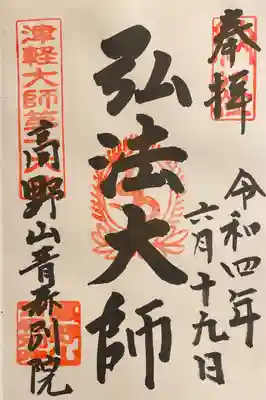 奉拝
令和四年
六月十九日
弘法大師
高野山青森別院
津軽大師